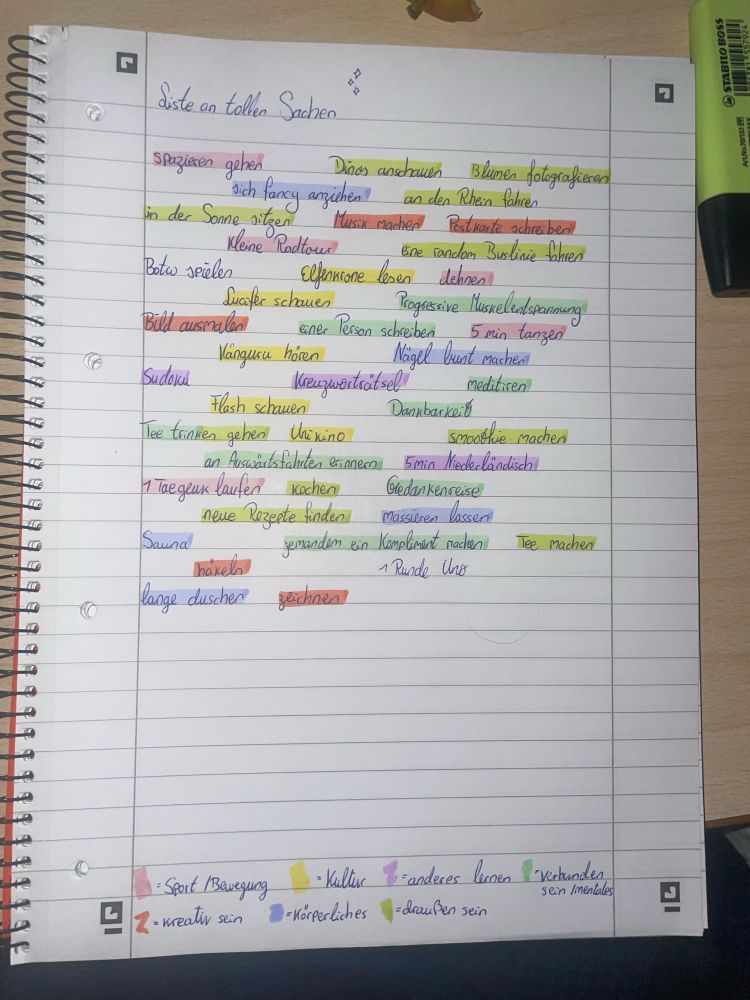 Liste an tollen Sachen
spazieren gehen Dinos anschauen Blumen fotografieren
sich fancy anziehen an den Rhein fahren
in der Sonne sitzen Musik machen Postkarte schreiben
kleine Radtour eine random Buslinie fahren
Botw spielen Elfenkrone lesen dehnen
Lucifer schauen Progressive Muskelentspannung
Bild ausmalen einer Person schreiben 5 min tanzen
Känguru hören Nägel bunt machen
Sudoku Kreuzworträtsel meditiren
Flash schauen Dankbarkeit
Tee trinken gehen Unikino smoothie machen
an Auswärtsfahrten erinnern 5min Niederländisch
1 Taegeuk laufen kochen Gedankenreise
neue Rezepte finden massieren lassen
Sauna jemandem ein Kompliment machen Tee machen
häkeln 1 Runde Uno
lange duschen zeichnen
= Sport/Bewegung = Kultur = anderes lernen = Verbunden
sein/mentales
= kreativ sein = Körperliches = draußen sein
STABILO BOSS